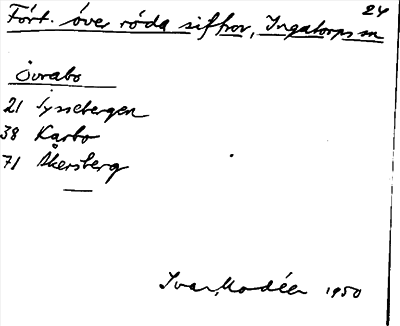 24
Fört. över röda siffror, Ingatorps sn
Övrabo
21 Syssebergen
38 Karbo
71 Åkersberg
Ivar Modéer 1950